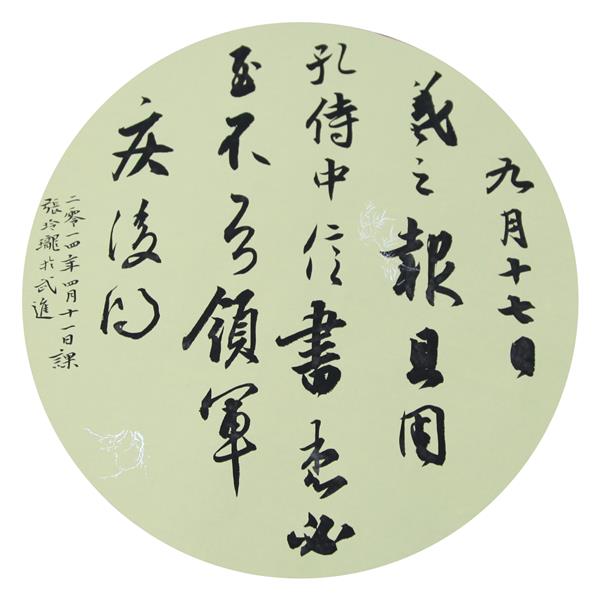 九月十七日
羲之報且因
孔侍中信書想必
至不知領軍
疾後問
二零一四年四月十一日課
張玲瓏於武進